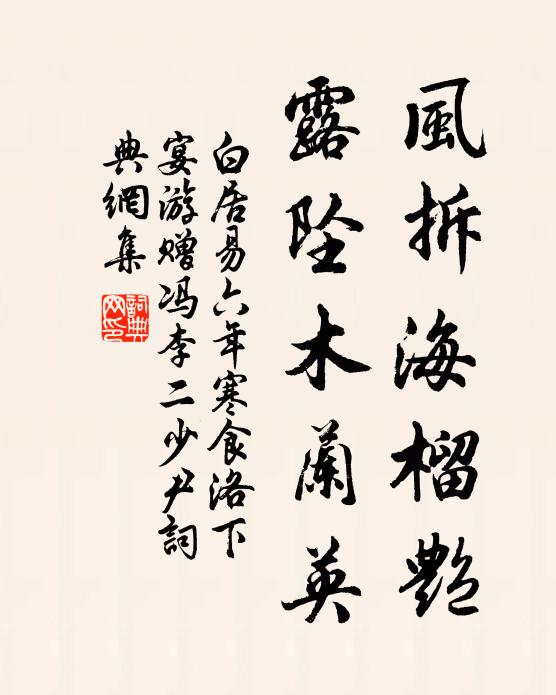 風拆海榴艷
露墜木蘭英
白居易六年寒食洛下
宴游赠冯李二少尹詞
典網集
詞典
网印